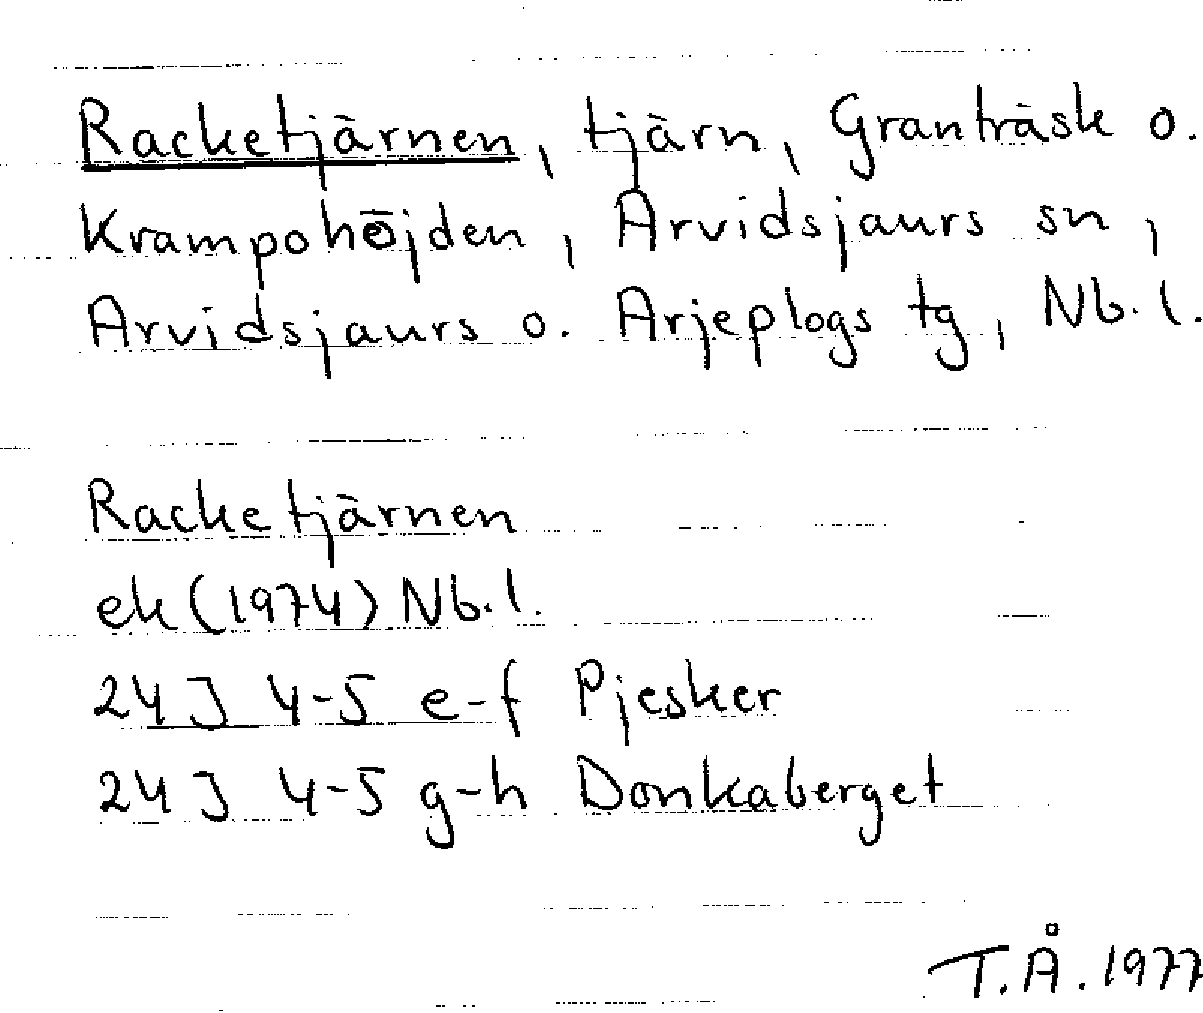 Racketjärnen, tjärn, Granträsk o.
Krampohöjden, Arvidsjaurs sn,
Arvidsjaurs o. Arjeplogs tg, Nb.l.
Racketjärnen
ek (1974) Nb.l.
24 J 4-5 e-f Pjesker
24 J 4-5 g-h Donkaberget
T.Å. 1977